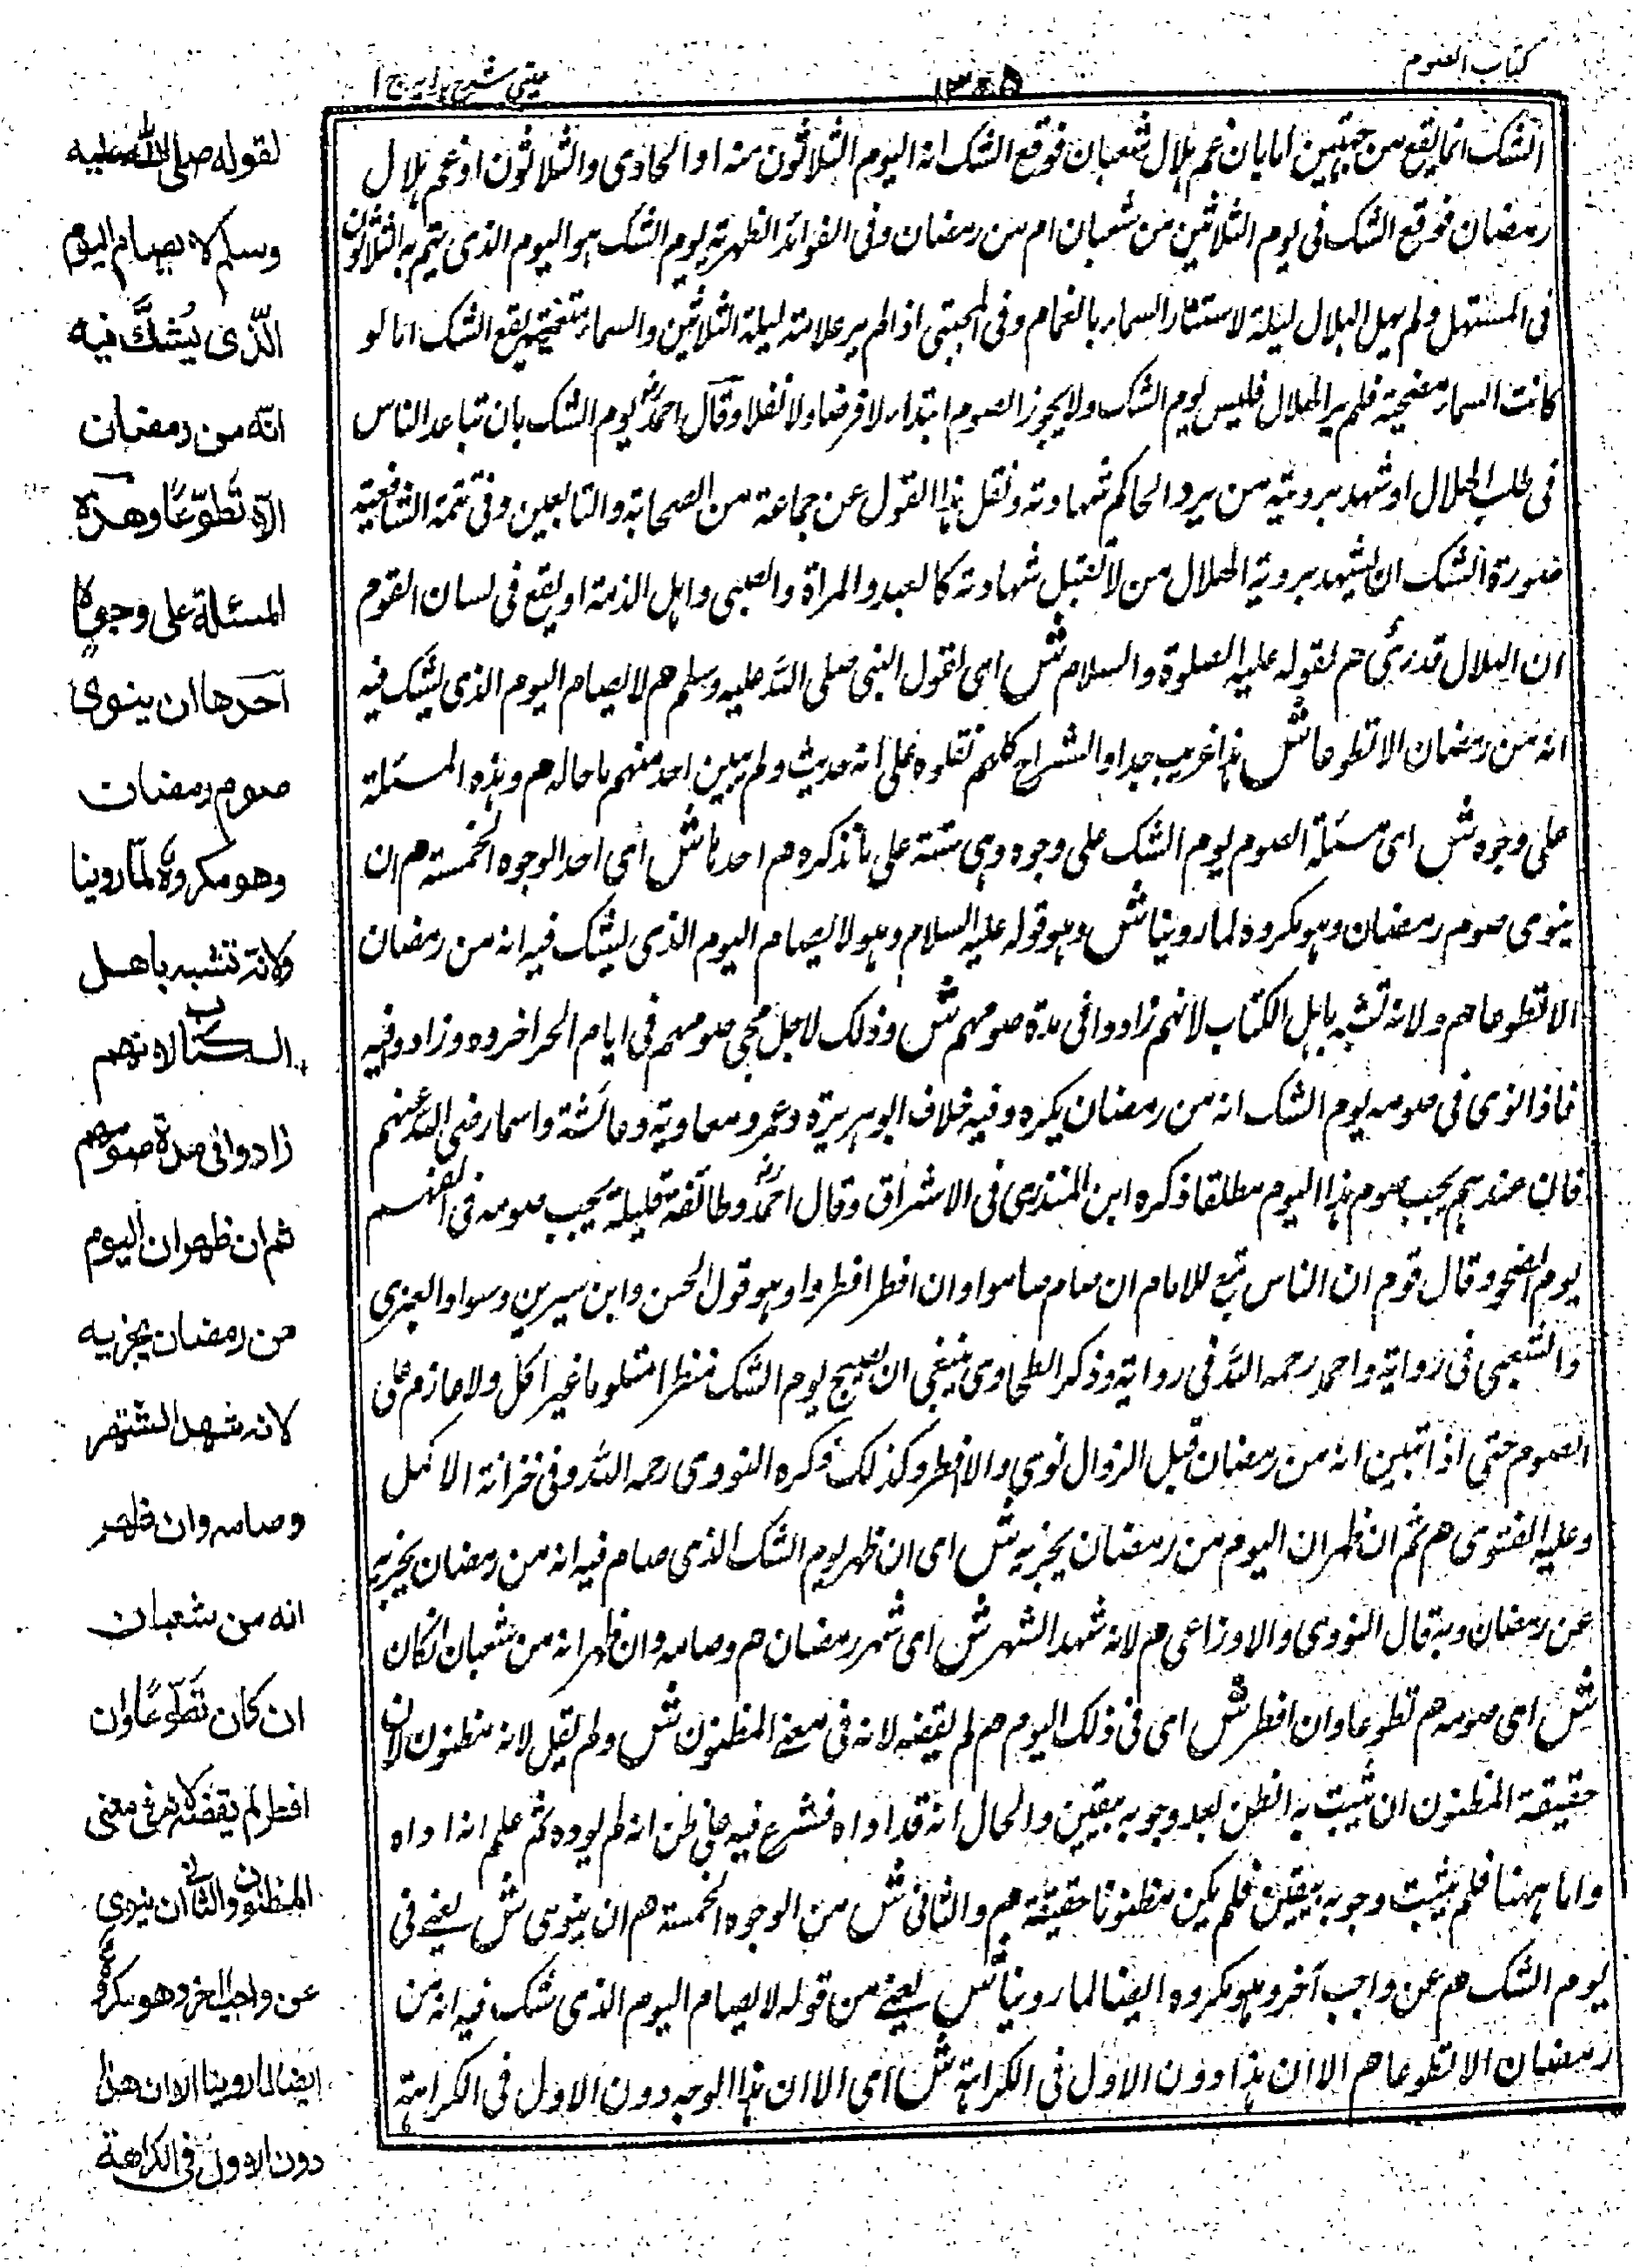 كتاب الصوم
١٣٤٥
عيني شرح هدايه ج ١
الشك انما يقع من جهتين اما بان غم هلال شعبان فوقع الشك انه اليوم الثلاثون منه او الحادى والثلاثون او غم هلال
رمضان فوقع الشك فى يوم الثلاثين من شعبان ام من رمضان وفى الفوائد الظهرية يوم الشك هو اليوم الذى يتم به الثلاثون
فى المستهل ولم يهل الهلال ليلة لاستتار السماء بالغمام وفى المجتبى اذا لم ير علامة ليلة الثلاثين والسماء متغيمة يقع الشك اما لو
كانت السماء مصحية فلم ير الهلال فليس يوم الشك ولا يجوز الصوم ابتداء لا فرضا ولا نفلا وقال احمد يوم الشك بان تباعد الناس
فى طلب الهلال او شهد برويته من يرد الحاكم شهادته ونقل هذا القول عن جماعة من الصحابة والتابعين وفى تتمة الشافعية
صورة الشك ان يشهد بروية الهلال من لا تقبل شهادته كالعبد والمراة والصبى واهل الذمة او يقع فى لسان القوم
ان الهلال قد رئى هم لقوله عليه الصلوة والسلام ش اى لقول النبى صلى الله عليه وسلم هم لا يصام اليوم الذى يشك فيه
انه من رمضان الا تطوعا ش هذا غريب جدا والشراح كلهم نقلوه على انه حديث ولم يبين احد منهم ما حاله هم وهذه المسئلة
على وجوه ش اى مسئلة الصوم يوم الشك على وجوه وهى ستة على ما نذكره هم احدها ش اى احد الوجوه الخمسة هم ان
ينوى صوم رمضان وهو مكروه لما روينا ش وهو قوله عليه السلام وهو لا يصام اليوم الذى يشك فيه انه من رمضان
الا تطوعا هم ولانه تشبه باهل الكتاب لانهم زادوا فى مدة صومهم ش وذلك لاجل مجى صومهم فى ايام الحر اخروه وزادوا فيه
فاذا نوى فى صومه يوم الشك انه من رمضان يكره وفيه خلاف ابو هريرة وعمر ومعاوية وعائشة واسماء رضى الله عنهم
فان عندهم يجب صوم هذا اليوم مطلقا ذكره ابن المنذرى فى الاشراق وقال احمد وطائفة قليلة يجب صومه فى الغيم
يوم الصحو وقال قوم ان الناس تبع للامام ان صام صاموا وان افطر افطروا وهو قول الحسن وابن سيرين وسوار العنبرى
والشعبى فى رواية واحمد رحمه الله فى رواية وذكر الطحاوى ينبغى ان يصبح يوم الشك منظرا متلوما غير اكل ولا عازم على
الصوم حتى اذا تبين انه من رمضان قبل الزوال نوى والا افطر وكذلك ذكره النووى رحمه الله وفى خزانة الاكمل
وعليه الفتوى هم ثم ان ظهر ان اليوم من رمضان يجزيه ش اى ان ظهر يوم الشك الذى صام فيه انه من رمضان يجزيه
عن رمضان وبه قال النووى والاوزاعى هم لانه شهد الشهر ش اى شهر رمضان هم وصامه وان ظهر انه من شعبان ان كان
ش اى صومه هم تطوعا وان افطر ش اى فى ذلك اليوم هم لم يقضه لانه فى معنى المظنون ش ولم يقل لانه مظنون لان
حقيقة المظنون ان يثبت به الظن بعد وجوبه بيقين والحال انه قد اداه فشرع فيه على ظن انه لم يوده ثم علم انه اداه
واما ههنا فلم يثبت وجوبه بيقين فلم يكن مظنونا حقيقة هم والثانى ش من الوجوه الخمسة هم ان ينوى ش يعنى فى
يوم الشك هم عن واجب آخر وهو مكروه ايضا لما روينا ش يعنى من قوله لا يصام اليوم الذى شك فيه انه من
رمضان الا تطوعا هم الا ان هذا دون الاول فى الكراهة ش اى الا ان هذا الوجه دون الاول فى الكراهة
لقوله صلى الله عليه
وسلم لا يصام اليوم
الّذى يُشكّ فيه
انّه من رمضان
الّا تَطوّعًا وهذه
المسئلة على وجوه
احدها ان ينوى
صوم رمضان
وهو مكروه لما روينا
ولانه تشبه باهل
الكتاب لانهم
زادوا فى مدة صومهم
ثم ان ظهر ان اليوم
من رمضان يجزيه
لانه شهد الشهر
وصامه وان ظهر
انه من شعبان
ان كان تَطوّعًا وان
افطر لم يقضه لانه فى معنى
المظنون والثانى ان ينوى
عن واجب اخر وهو مكروه
ايضا لما روينا الا ان هذا
دون الاول فى الكراهة